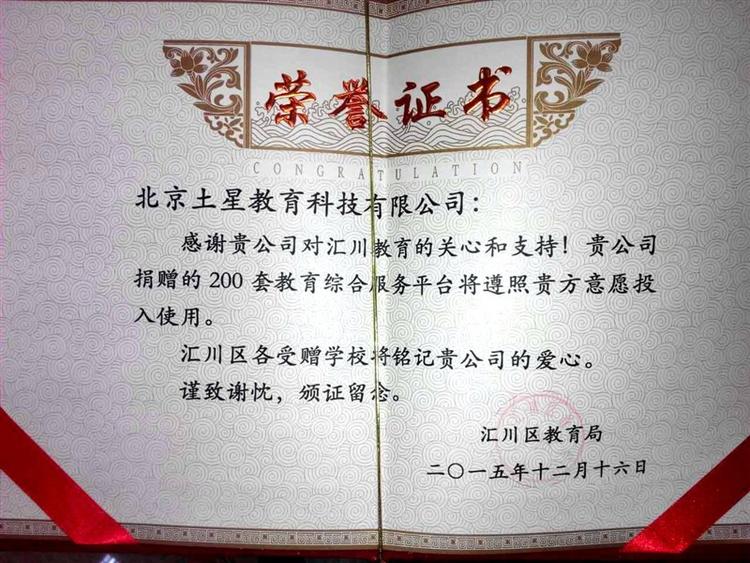 荣誉证书
CONGRATULATION
北京土星教育科技有限公司：
感谢贵公司对汇川教育的关心和支持！贵公司
捐赠的200套教育综合服务平台将遵照贵方意愿投
入使用。
汇川区各受赠学校将铭记贵公司的爱心。
谨致谢忱，颁证留念。
汇川区教育局
二〇一五年十二月十六日